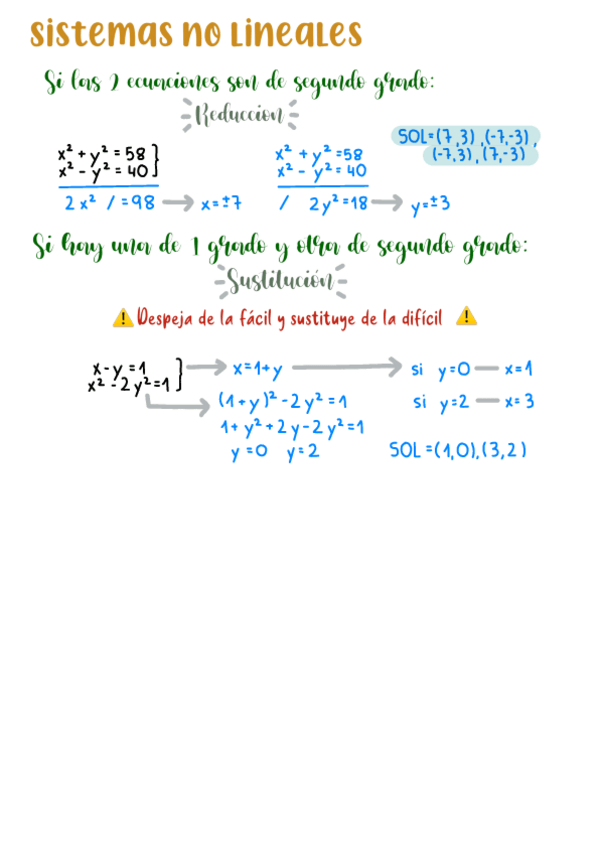 Sistemas no lineales
Si las 2 ecuaciones son de segundo grado:
Reduccion
x² + y² = 58 }
x² - y² = 40
2x² / = 98 → x = ±7
x² + y² = 58
x² - y² = 40
/ 2y² = 18 → y = ±3
SOL = (7,3), (-7,-3),
(-7,3), (7,-3)
Si hay una de 1 grado y otra de segundo grado:
Sustitución
⚠ Despeja de la fácil y sustituye de la difícil ⚠
x - y = 1 } → x = 1 + y → si y = 0 — x = 1
x² - 2y² = 1
(1 + y)² - 2y² = 1
si y = 2 — x = 3
1 + y² + 2y - 2y² = 1
y = 0 y = 2
SOL = (1,0), (3,2)